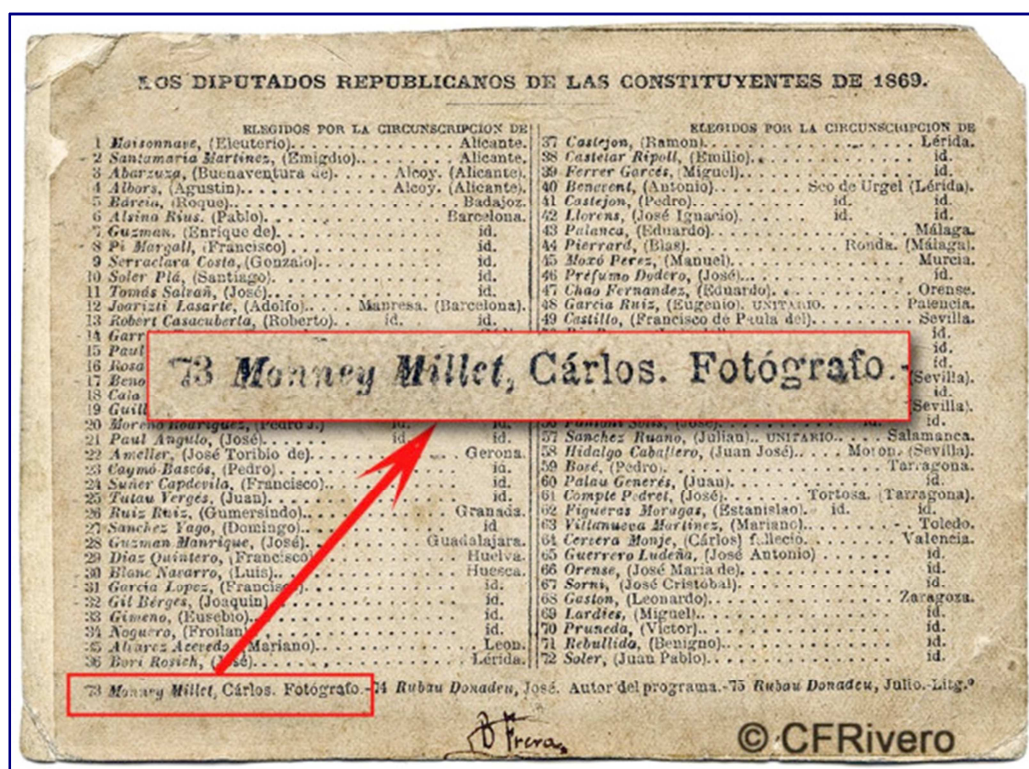 LOS DIPUTADOS REPUBLICANOS DE LAS CONSTITUYENTES DE 1869.
ELEGIDOS POR LA CIRCUNSCRIPCION DE
1 Maisonnave, (Eleuterio). Alicante.
2 Santamaria Martinez, (Emigdio). Alicante.
3 Abarzuza, (Buenaventura de). Alcoy. (Alicante).
4 Albors, (Agustin). Alcoy. (Alicante).
5 Bárcia, (Roque). Badajoz.
6 Alsina Rius. (Pablo). Barcelona.
7 Guzman, (Enrique de). id.
8 Pi Margall, (Francisco) id.
9 Serraclara Costa, (Gonzalo). id.
10 Soler Plá, (Santiago). id.
11 Tomás Salvañ, (José). id.
12 Joarizti Lasarte, (Adolfo). Manresa. (Barcelona).
13 Robert Casacuberta, (Roberto). id. id.
14 Garr
15 Paul
16 Rosa
17 Beno
18 Cala
19 Guill
20 Moreno Rodriguez, (Pedro J.) id. id.
21 Paul Angulo, (José). id. id.
22 Ameller, (José Toribio de). Gerona.
23 Caymó Bascós, (Pedro). id.
24 Suñer Capdevila, (Francisco). id.
25 Tutau Vergés, (Juan). id.
26 Ruiz Ruiz, (Gumersindo). Granada.
27 Sanchez Yago, (Domingo). id
28 Guzman Manrique, (José). Guadalajara.
29 Diaz Quintero, (Francisco) Huelva.
30 Blanc Navarro, (Luis). Huesca.
31 Garcia Lopez, (Francisco) id.
32 Gil Bérges, (Joaquin) id.
33 Gimeno, (Eusebio). id.
34 Noguero, (Froilan) id.
35 Alvarez Acevedo, (Mariano). Leon.
36 Bori Rosich, (José). Lérida.
ELEGIDOS POR LA CIRCUNSCRIPCION DE
37 Castejon, (Ramon). Lérida.
38 Castelar Ripoll, (Emilio). id.
39 Ferrer Garcés, (Miguel). id.
40 Benavent, (Antonio). Seo de Urgel (Lérida).
41 Castejon, (Pedro). id. id.
42 Llorens, (José Ignacio). id. id.
43 Palanca, (Eduardo). Málaga.
44 Pierrard, (Blas). Ronda. (Málaga).
45 Moxó Perez, (Manuel). Murcia.
46 Préfumo Dodero, (José). id.
47 Chao Fernandez, (Eduardo). Orense.
48 Garcia Ruiz, (Eugenio). UNITARIO. Palencia.
49 Castillo, (Francisco de Paula del). Sevilla.
id.
id.
id.
(Sevilla).
id.
(Sevilla).
57 Sanchez Ruano, (Julian). UNITARIO. Salamanca.
58 Hidalgo Caballero, (Juan José). Moron. (Sevilla).
59 Bosé, (Pedro). Tarragona.
60 Palau Generés, (Juan). id.
61 Compte Pedret, (José). Tortosa. (Tarragona).
62 Figueras Moragas, (Estanislao). id. id.
63 Villanueva Martinez, (Mariano). Toledo.
64 Cervera Monje, (Cárlos) falleció. Valencia.
65 Guerrero Ludeña, (José Antonio) id.
66 Orense, (José Maria de). id.
67 Sorni, (José Cristóbal). id.
68 Gaston, (Leonardo). Zaragoza.
69 Lardies, (Miguel). id.
70 Pruneda, (Victor). id.
71 Rebullida, (Benigno). id.
72 Soler, (Juan Pablo). id.
73 Monney Millet, Cárlos. Fotógrafo.-
73 Monney Millet, Cárlos. Fotógrafo.-74 Rubau Donadeu, José. Autor del programa.-75 Rubau Donadeu, Julio.-Litg.º
© CFRivero